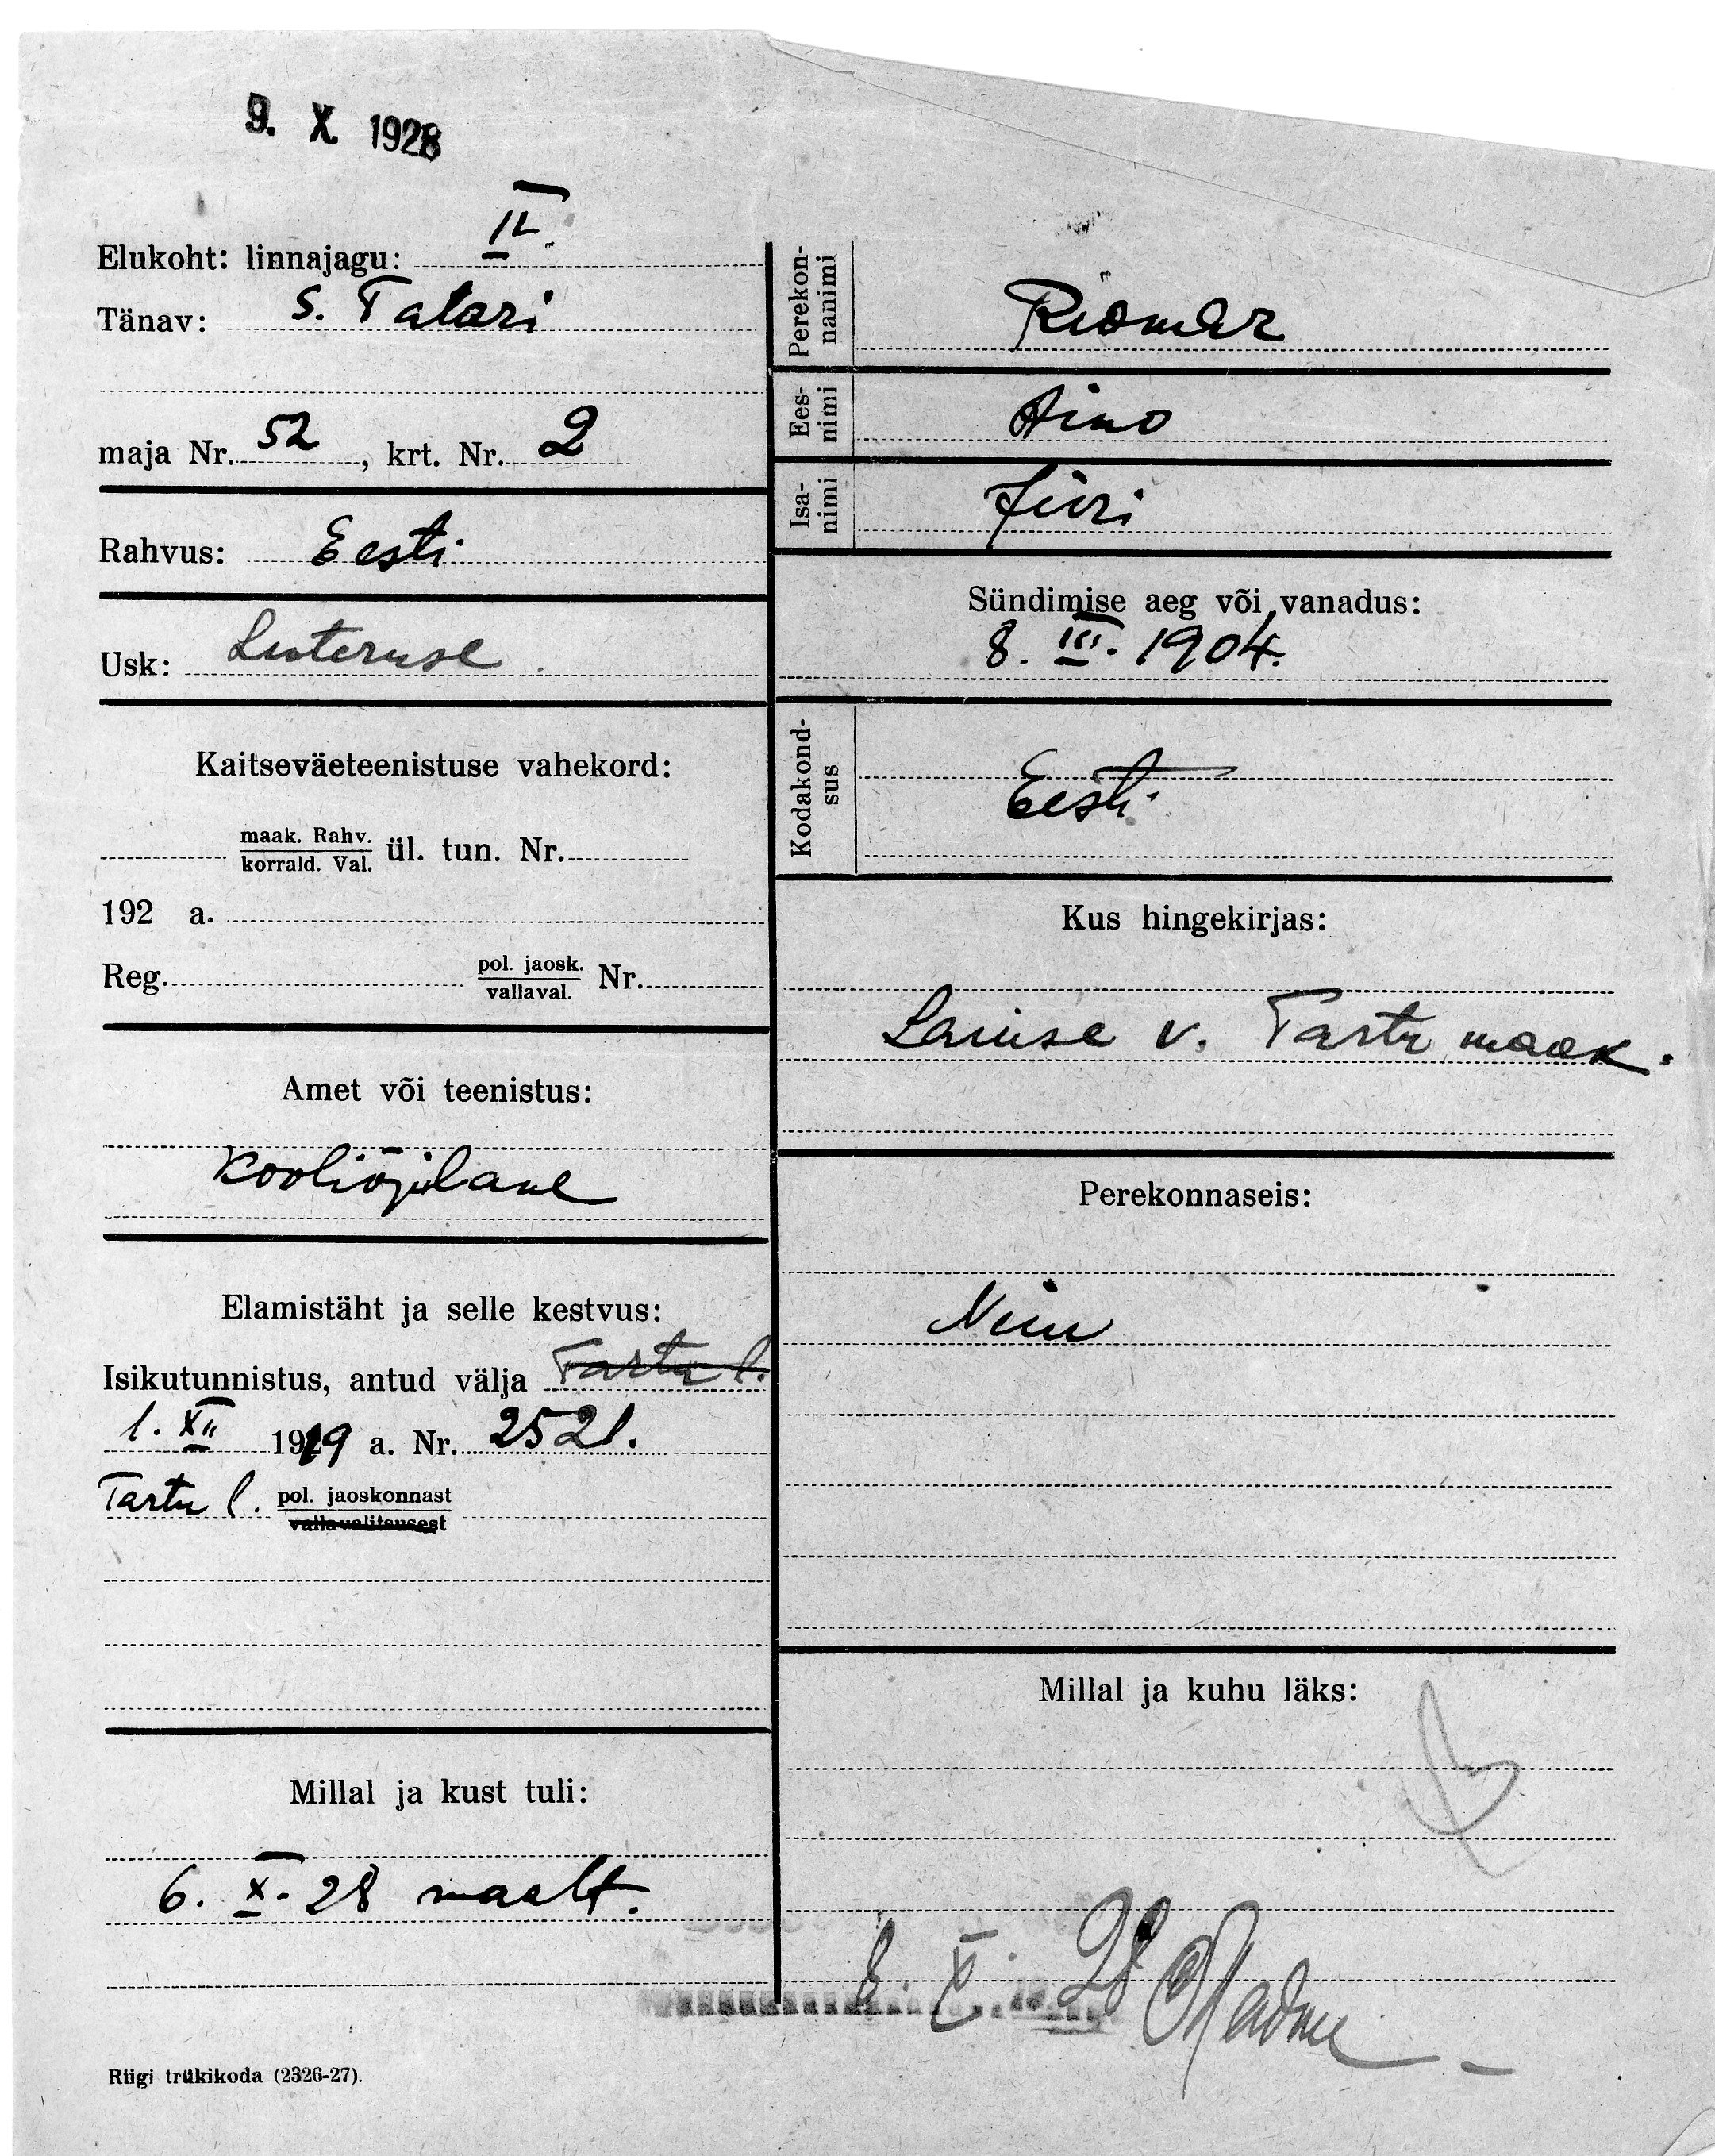 9. X. 1928
Elukoht: linnajagu: II
Tänav: S. Tatari
maja Nr. 52, krt. Nr. 2
Rahvus: Eesti
Usk: Luteruse
Kaitseväeteenistuse vahekord:
maak. Rahv.
korrald. Val. ül. tun. Nr.
192 a.
Reg. pol. jaosk.
vallaval. Nr.
Amet või teenistus:
Kooliõpilane
Elamistäht ja selle kestvus:
Isikutunnistus, antud välja Tartu l.
1. XII 1919 a. Nr. 2521.
Tartu l. pol. jaoskonnast
vallavalitsusest
Millal ja kust tuli:
6. X. 28 maalt.
Riigi trükikoda (2326-27).
Perekon-
nanimi
Ees-
nimi Aino
Isa-
nimi Jüri
Sündimise aeg või vanadus:
8. III. 1904.
Kodakond-
sus Eesti
Kus hingekirjas:
Laiuse v. Tartu maak.
Perekonnaseis:
Millal ja kuhu läks:
8. X. 28